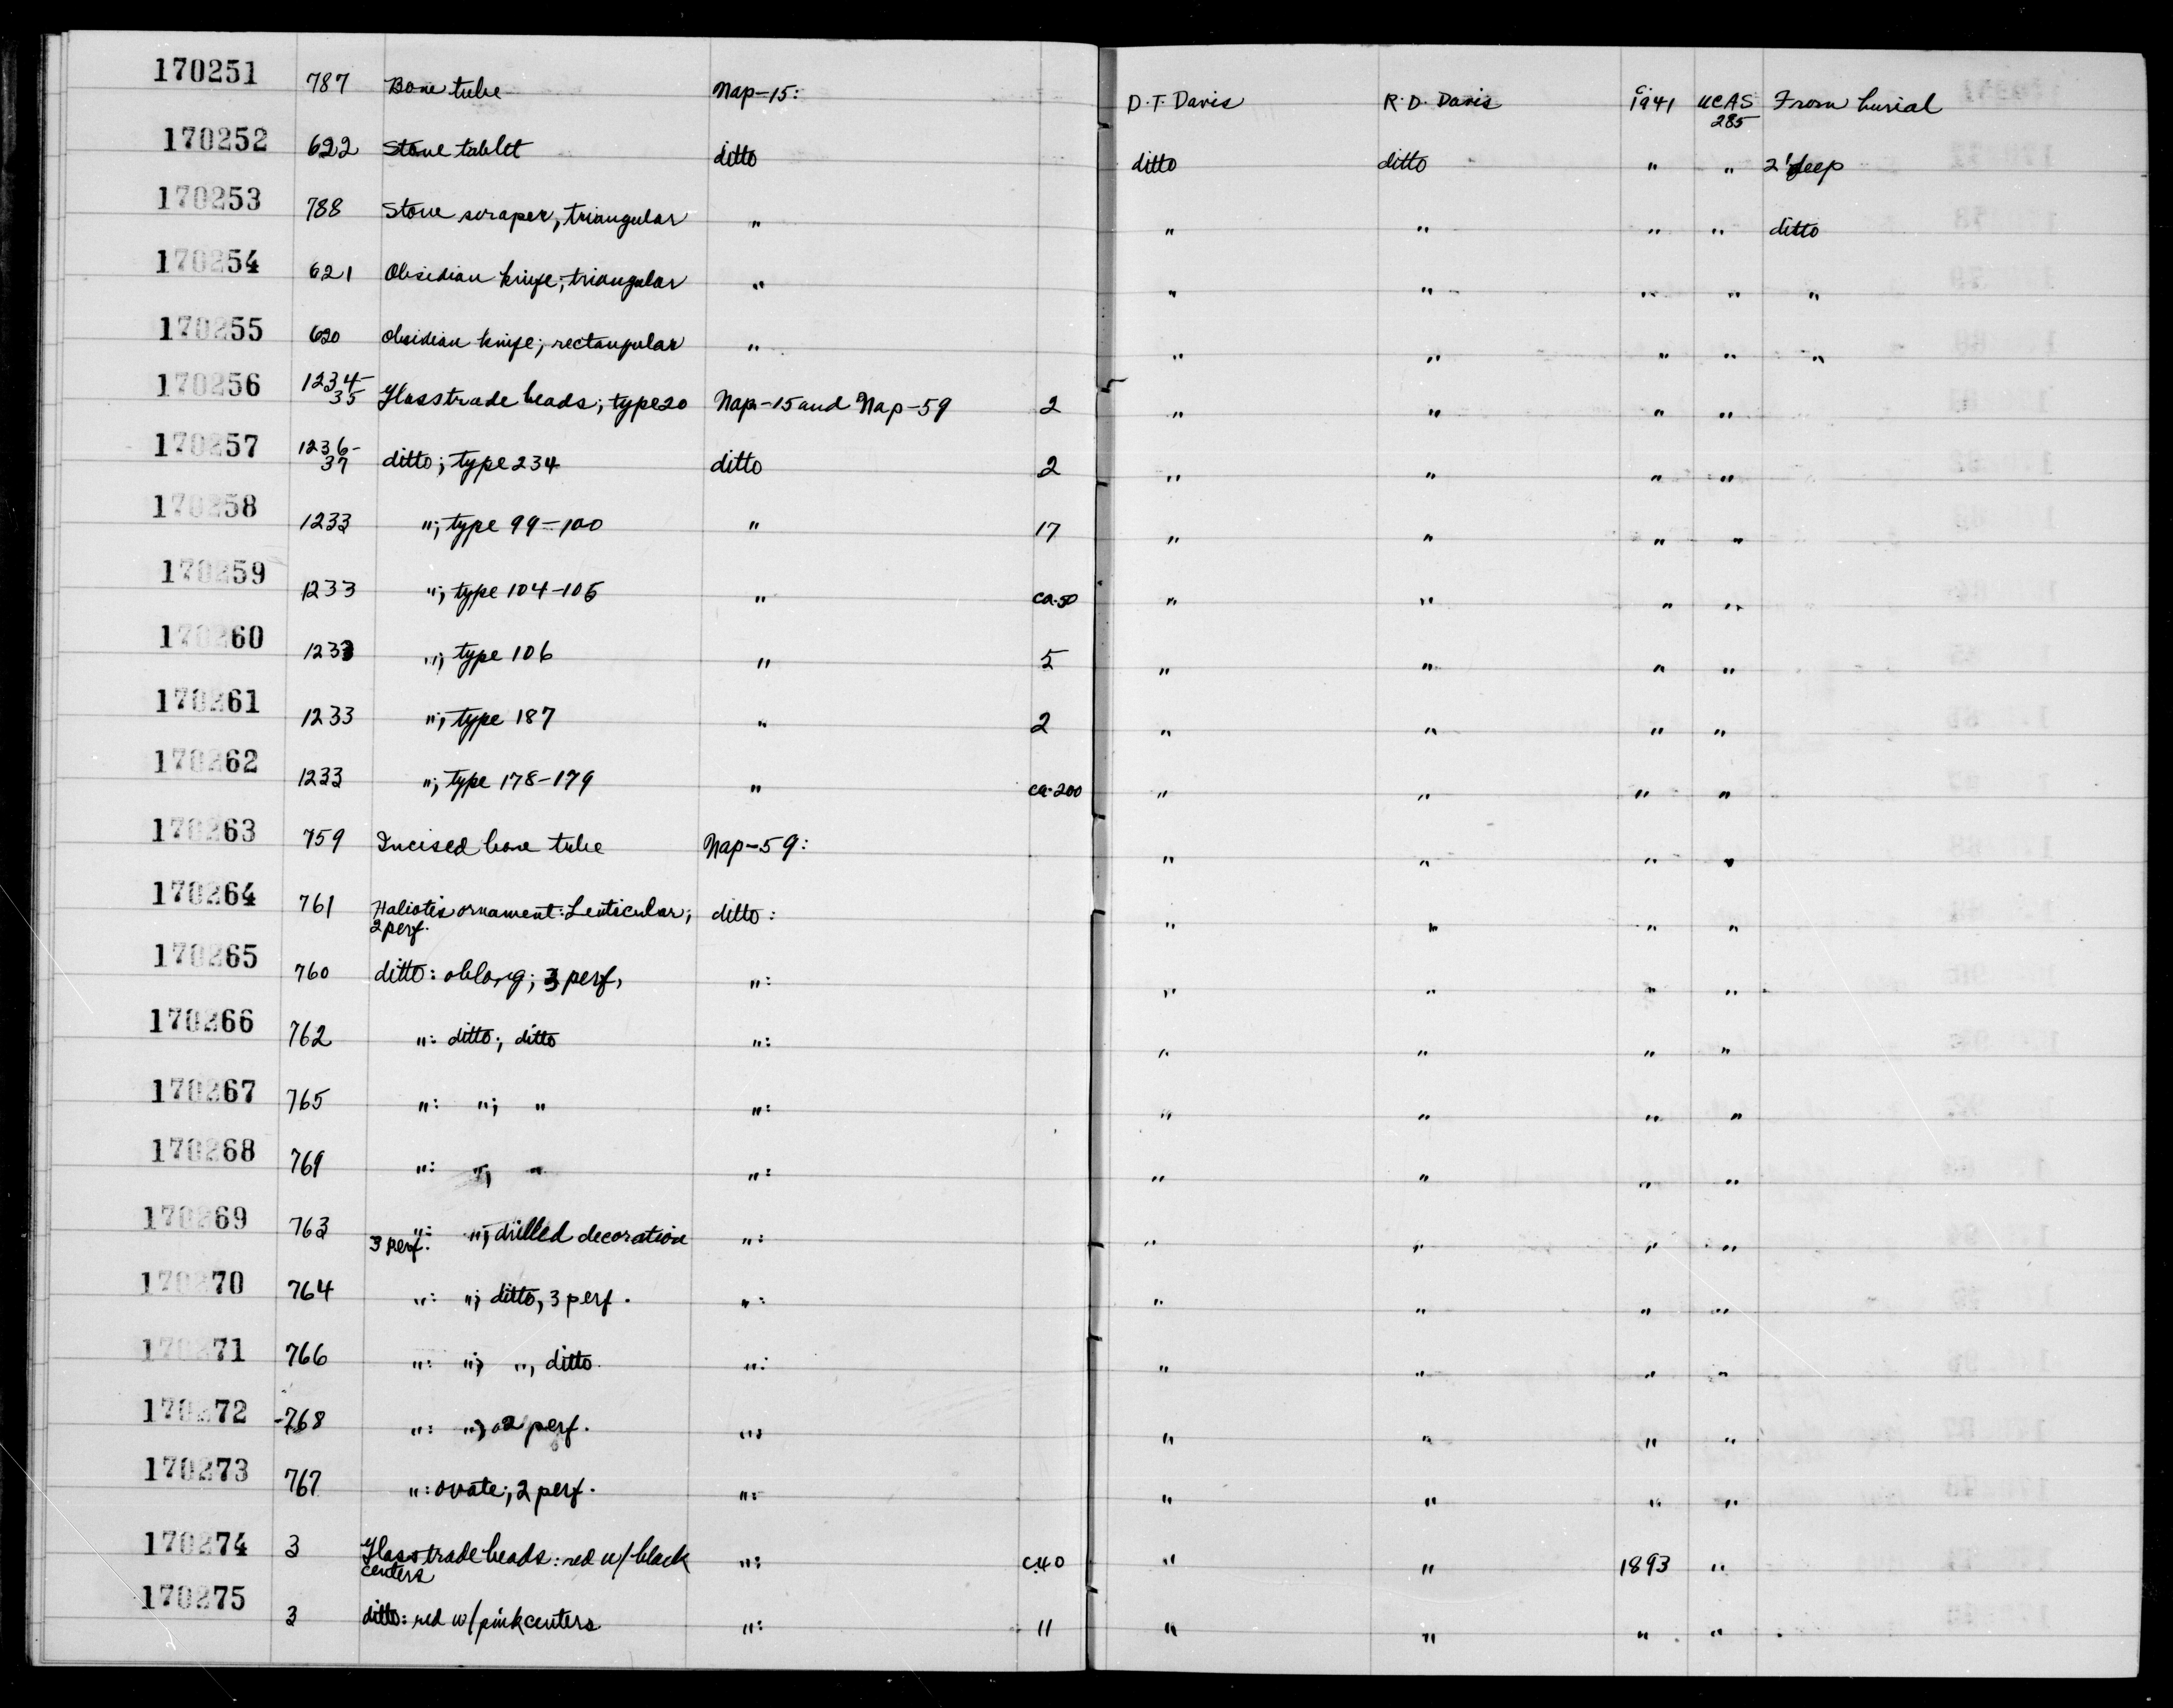 170251 787 Bone tube Nap-15: D.T. Davis R.D. Davis c. 1941 UCAS 285 From burial
170252 622 Stone tablet ditto ditto ditto " " 2' deep
170253 788 Stone scraper, triangular " " " " " ditto
170254 621 Obsidian knife; triangular " " " " " "
170255 620 Obsidian knife; rectangular " " " " " "
170256 1234-35 Glass trade beads; type 20 Nap-15 and Nap-59 2 " " " "
170257 1236-37 ditto; type 234 ditto 2 " " " "
170258 1233 "; type 99-100 " 17 " " " "
170259 1233 "; type 104-105 " ca. 50 " " " "
170260 1233 "; type 106 " 5 " " " "
170261 1233 "; type 187 " 2 " " " "
170262 1233 "; type 178-179 " ca. 200 " " " "
170263 759 Incised bone tube Nap-59: " " " "
170264 761 Haliotis ornament: Lenticular; 2 perf. ditto: " " " "
170265 760 ditto: oblong; 3 perf. ": " " " "
170266 762 ": ditto; ditto ": " " " "
170267 765 ": "; " ": " " " "
170268 769 ": "; " ": " " " "
170269 763 ": "; drilled decoration 3 perf. ": " " " "
170270 764 ": "; ditto, 3 perf. ": " " " "
170271 766 ": "; ", ditto ": " " " "
170272 -768 ": "; 2 perf. ": " " " "
170273 767 ": ovate; 2 perf. ": " " " "
170274 3 Glass trade beads: red w/ black centers ": c.40 " " 1893 "
170275 3 ditto: red w/ pink centers ": 11 " " " "